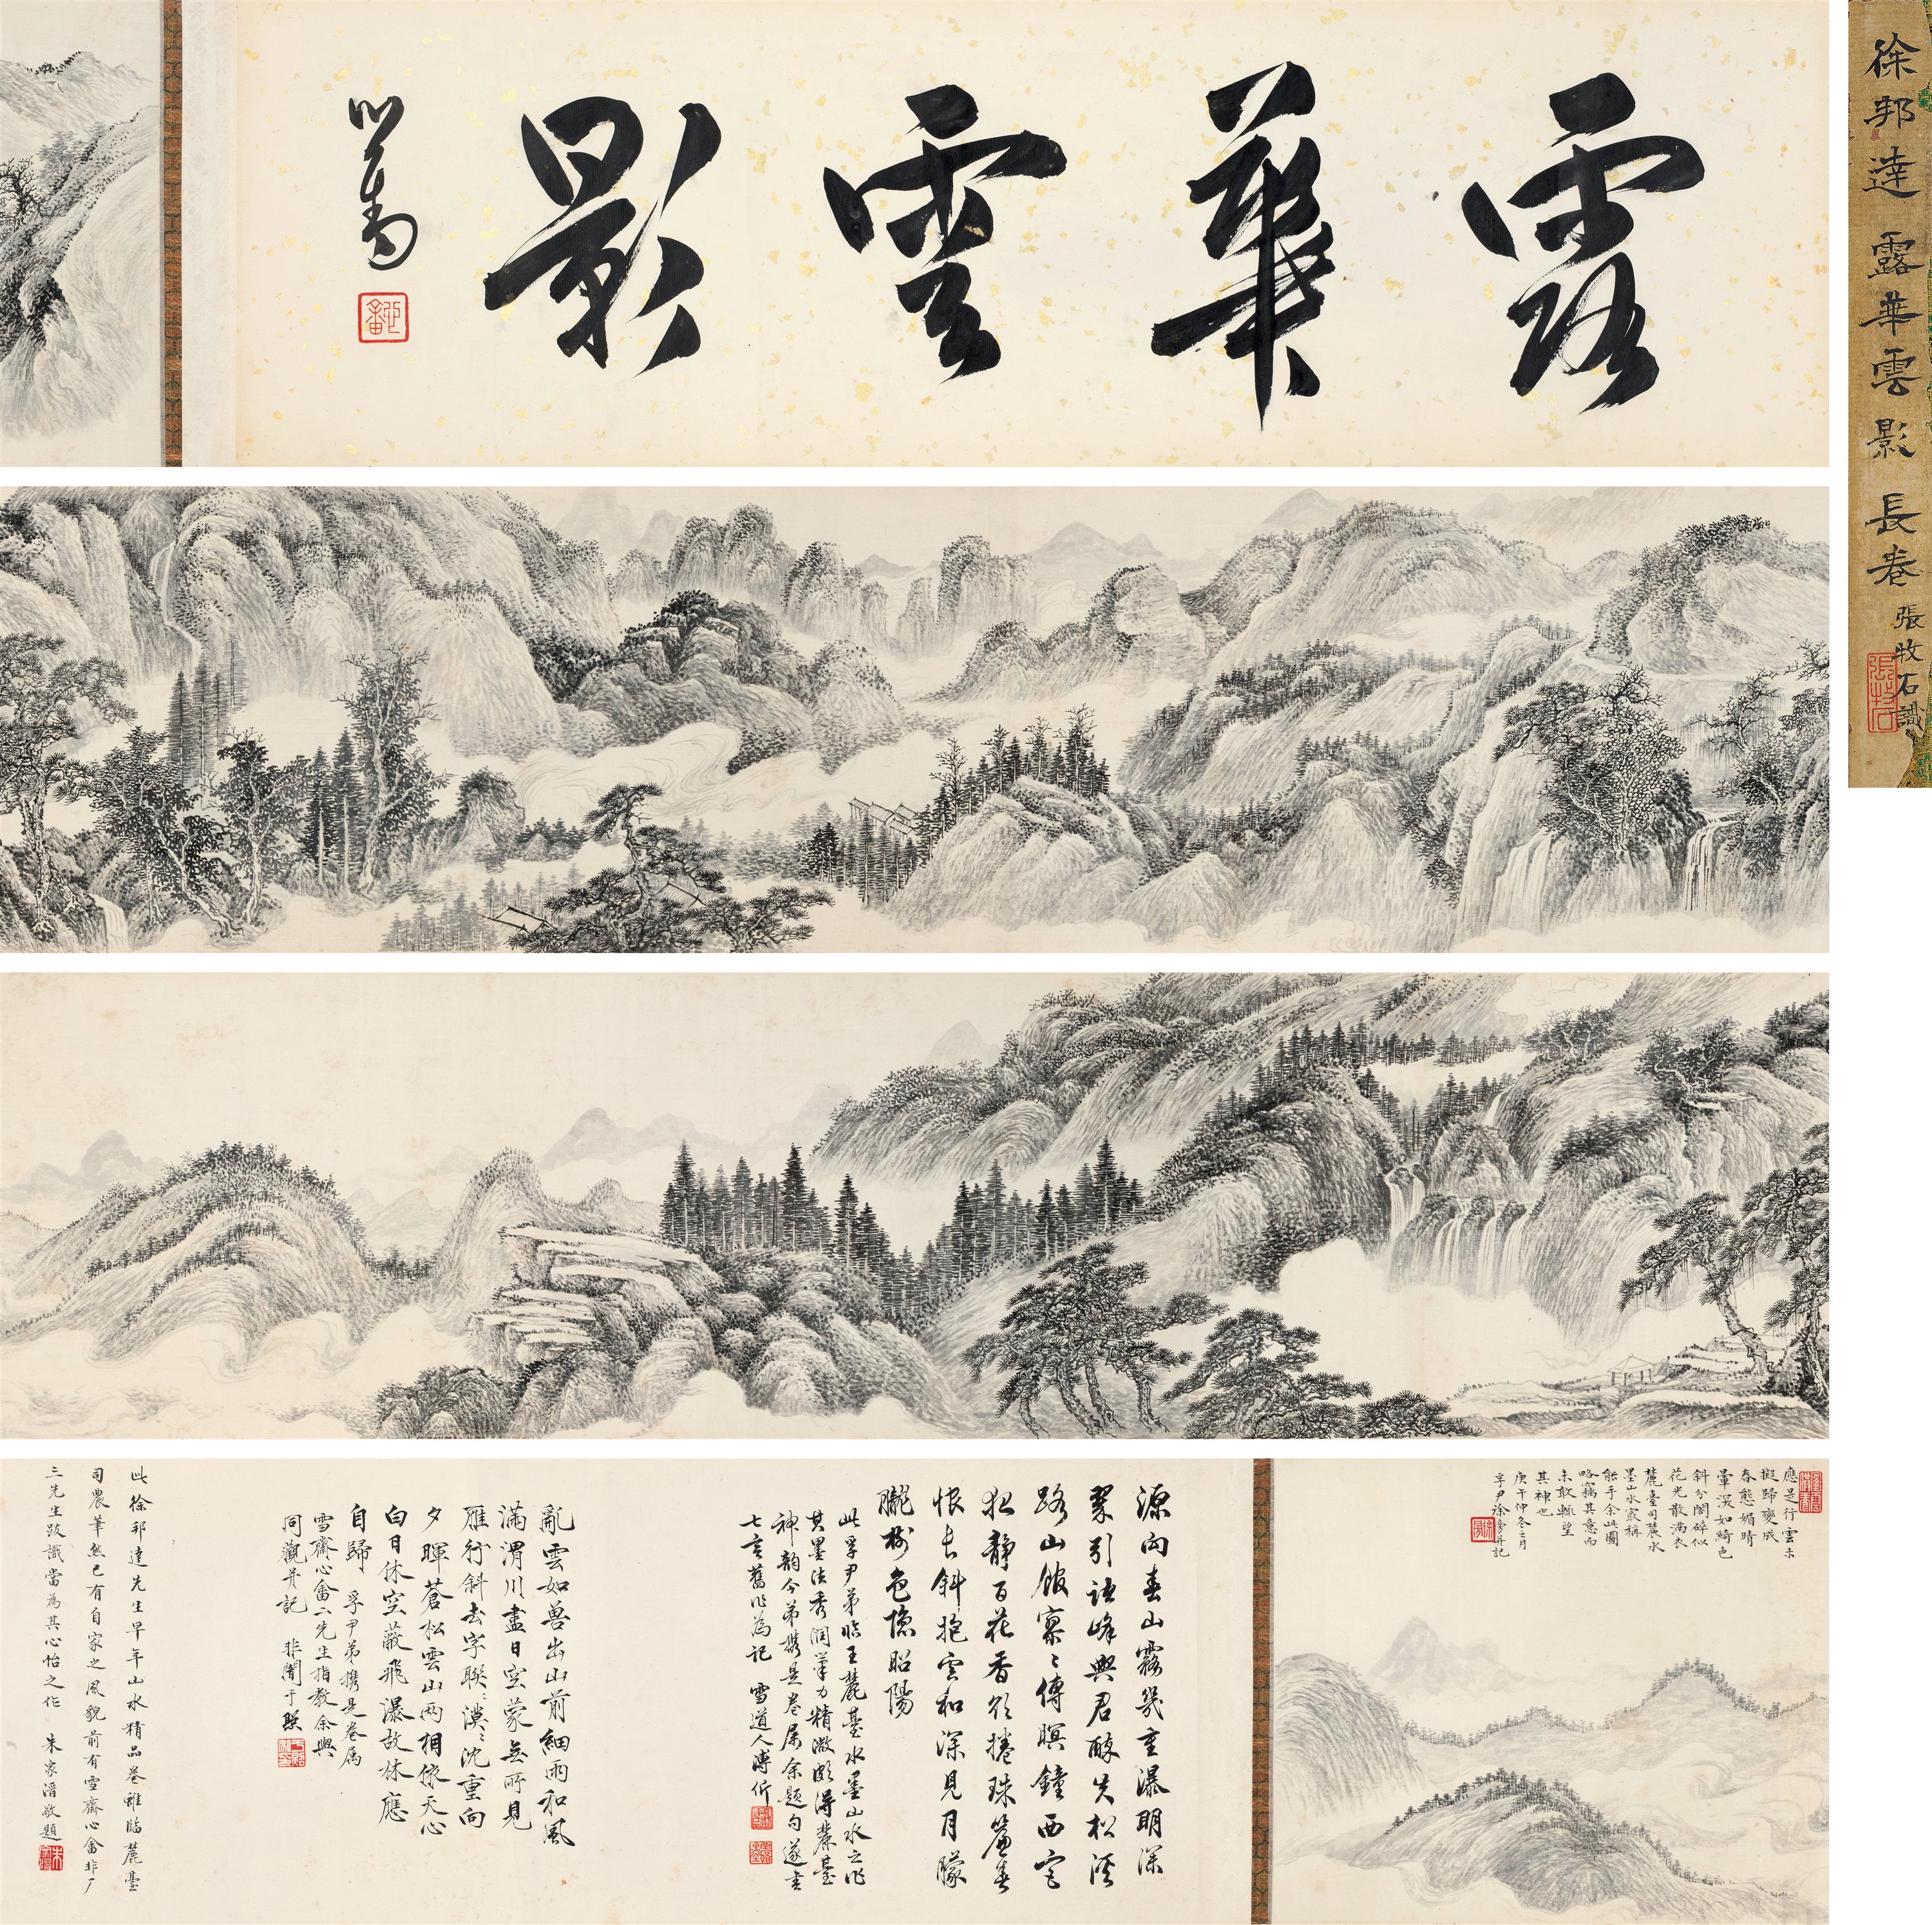 徐邦達 露華雲影 長卷 張牧石識
露華雲影
心畬
應是行雲未
擬歸變成
春態媚晴
暈深如綺色
斜分閣碎似
花光散滿衣
麓臺司農水
墨山水最稱
能手余此圖
略窺其意而
未敢輒望
其神也
庚午仲冬二月
孚尹徐旁并記
源向春山霧幾重瀑明深
翠引語峰與君醉失松溪
路山館寥〻傳暝鐘西宮
夜靜百花香欲捲珠簾春
恨長斜抱雲和深見月朦
朧樹色隱昭陽
此孚尹弟臨王麓臺水墨山水之作
其墨法秀潤筆力精微頗得麓臺
神韵今弟携是卷屬余題句遂書
七言舊作為記 雪道人溥伒
亂雲如獸出山前細雨和風
滿渭川盡日空蒙無所見
雁行斜去字聯〻漠〻沈重向
夕暉蒼松雲山兩相依天心
白日休空蔽飛瀑故林應
自歸 孚尹弟携是卷屬
雪齋心畬二先生指教余與
同觀并記 非闇于照
此徐邦達先生早年山水精品卷雖臨麓臺
司農筆然已有自家之風貌前有雪齋心畬非厂
三先生跋識當為其心怡之作 朱家溍敬題